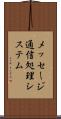 メッセージ
通信処理シ
ステム